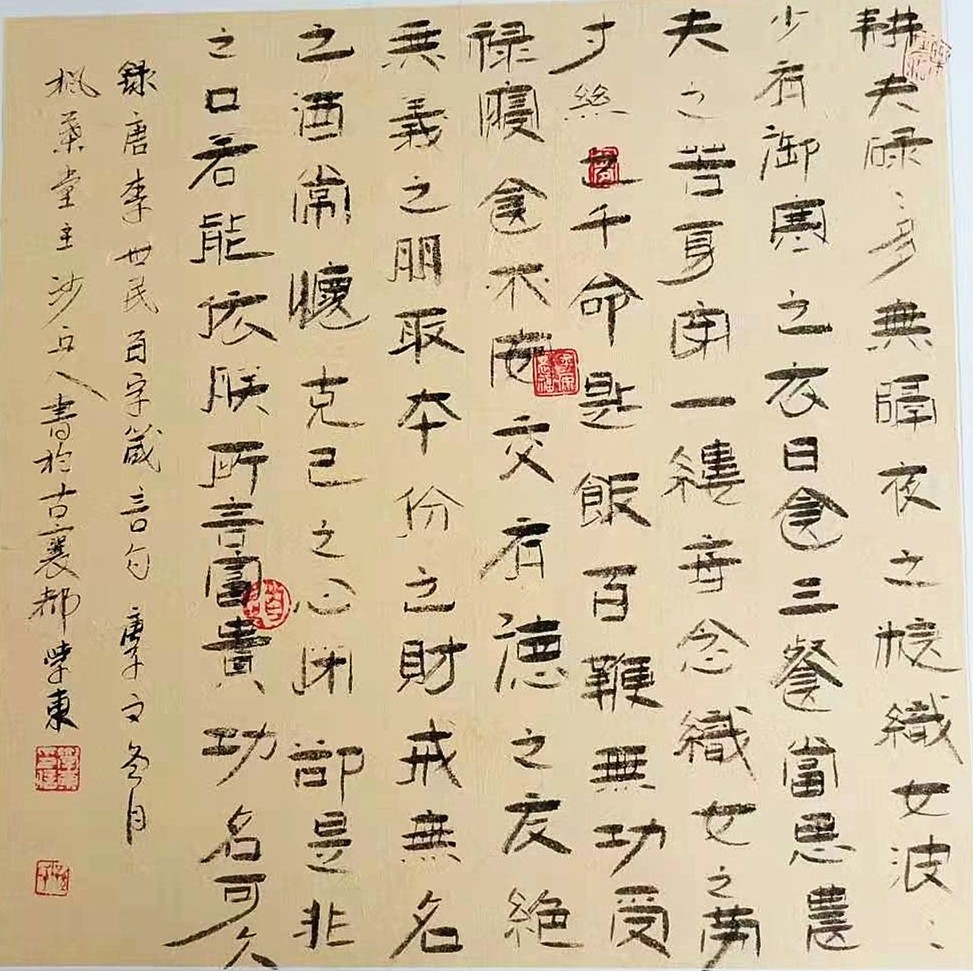 耕夫碌〻多無隔夜之粮織女波〻
少有御寒之衣日食三餐當思農
夫之苦身穿一縷每念織女之勞
寸絲千命匙飯百鞭無功受
禄寢食不安交有德之友絕
無義之朋取本份之財戒無名
之酒常懷克己之心閉卻是非
之口若能依朕所言富貴功名可久
錄唐李世民百字箴言句 庚子冬月
枫葉堂主沙丘人書於古襄都學東